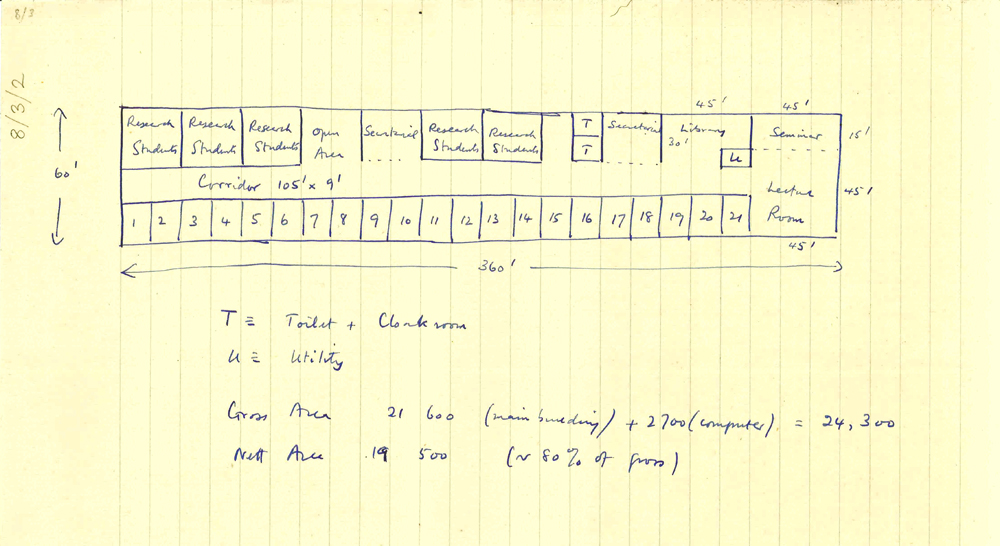 8/3
8/3/2
45' 45'
Research Students
Research Students
Research Students
Open Area
Secretarial
Research Students
Research Students
T
T
Secretarial
Library
30'
U
Seminar
15'
60'
Corridor 105' x 9'
Lecture Room
45'
1 2 3 4 5 6 7 8 9 10 11 12 13 14 15 16 17 18 19 20 21
45'
360'
T ≡ Toilet + Cloakroom
U ≡ Utility
Gross Area 21 600 (main building) + 2700 (computer) = 24,300
Nett Area 19 500 (~ 80% of gross)